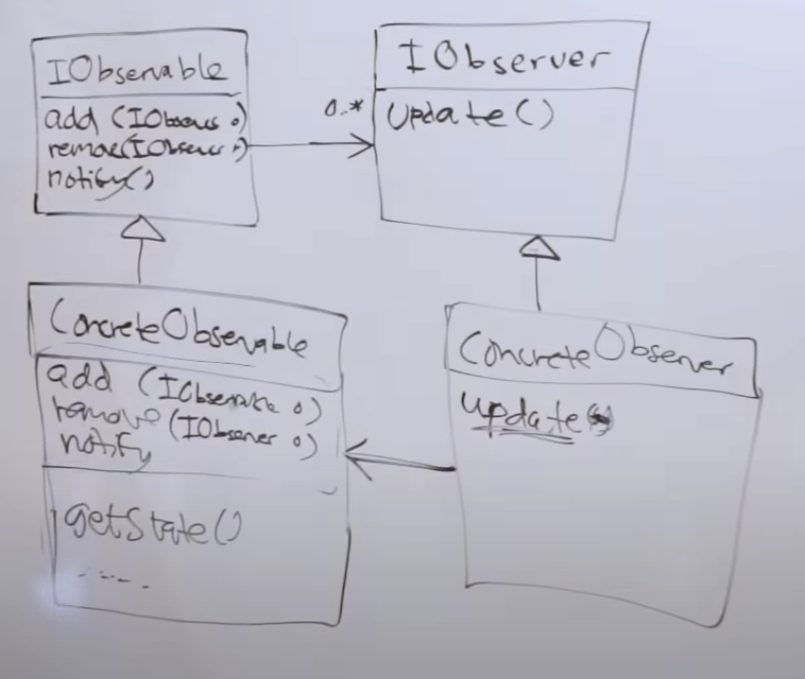 IObservable
add (IObserver o)
remove(IObserver o)
notify()
0..*
IObserver
Update()
ConcreteObservable
add (IObservable o)
remove (IObserver o)
notify
getState()
ConcreteObserver
update()